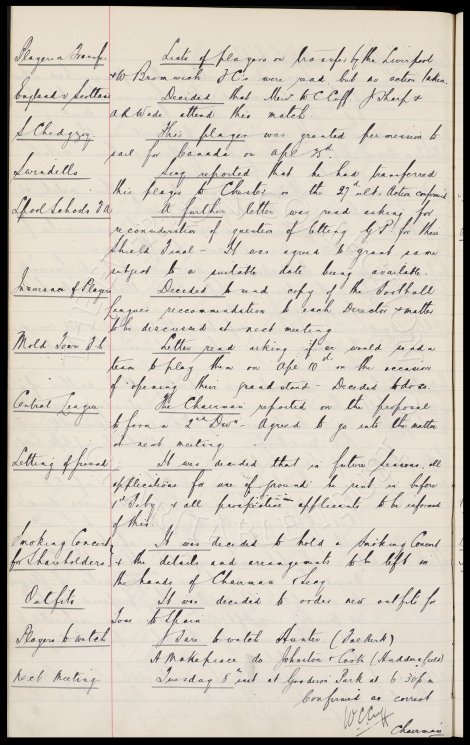 Players on Transfer Lists of players on transfer by the Liverpool
& W Bromwich F C's were read but no action taken.
England v Scotland Decided that Messrs W C Cuff J Sharp &
A R Wade attend this match.
S Chedgzoy This player was granted permission to
sail for Canada on Apl 25th.
Swindells Secy reported that he had transferred
this player to Chester on the 27th ult. Action confirmed
Lpool Schools F A A further letter was read asking for
reconsideration of question of letting G P for their
Shield Final - It was agreed to grant same
subject to a suitable date being available.
Insurance of Players Decided to send copy of the Football
League's recommendation to each Director & matter
to be discussed at next meeting.
Mold Town F C Letter read asking if we would send a
team to play them on Apl 10th on the occasion
of opening their grand stand - Decided to do so.
Central League The Chairman reported on the proposal
to form a 2nd Divn - Agreed to go into the matter
at next meeting
Letting of ground It was decided that in future seasons all
applications for use of ground be sent in before
1st Feby & all prospective applicants to be informed
of this.
Smoking Concert It was decided to hold a Smoking Concert
for Shareholders & the details and arrangements to be left in
the hands of Chairman & Secy
Outfits It was decided to order new outfits for
Tour to Spain
Players to watch J to watch Hunter (Falkirk)
A Makepeace do Johnston & Cook (Huddersfield)
Next Meeting. Tuesday 8th inst at Goodison Park at 6.30 pm
Confirmed as correct
W C Cuff
Chairman